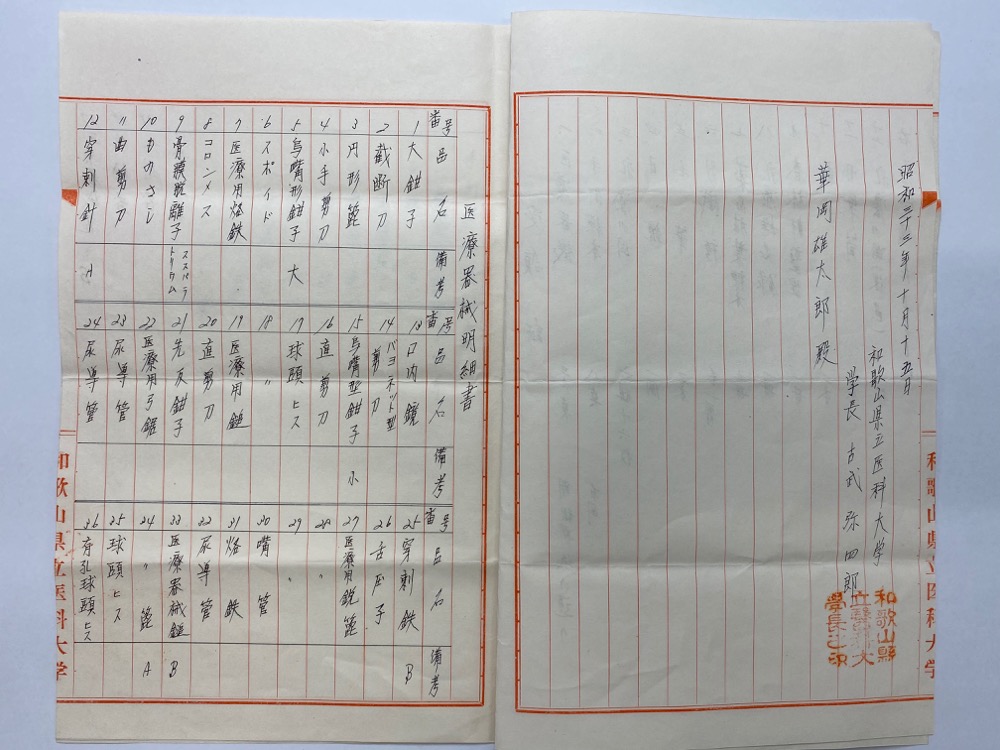 昭和二十三年十月十五日
和歌山県立医科大学
学長 古武弥四郎
和歌山縣
立醫科大
學長之印
華岡雄太郎殿
和歌山県立医科大学
医療器械明細書
番号 品名 備考
1 大鉗子
2 截断刀
3 円形篦
4 小手剪刀
5 烏嘴形鉗子 大
6 スポイド
7 医療用烙鉄
8 コロンメス
9 骨膜剥離子
10 ものさし
11 曲剪刀
12 穿刺針 A
番号 品名 備考
13 口内鏡
14 バヨネット型剪刀
15 烏嘴型鉗子 小
16 直剪刀
17 球頭ヒス
18 〃
19 医療用鎚
20 直剪刀
21 先反鉗子
22 医療用弓鋸
23 尿導管
24 尿導管
番号 品名 備考
25 穿刺鉄 B
26 舌圧子
27 医療用鋭篦
28 〃
29 〃
30 嘴管
31 烙鉄
32 尿導管
33 医療器械鎚 B
34 〃 篦 A
35 球頭ヒス
36 有孔球頭ヒス
和歌山県立医科大学